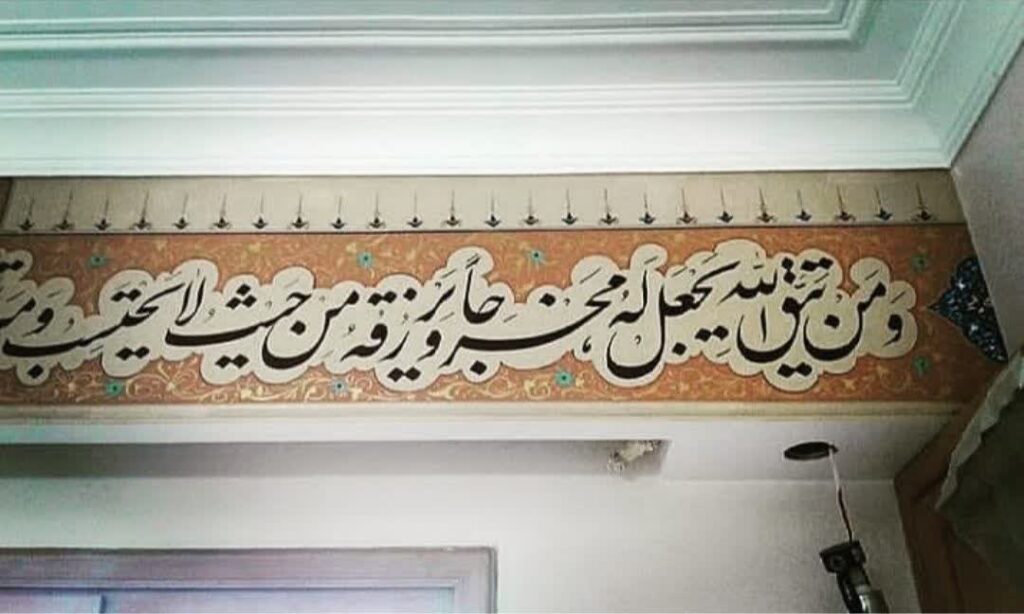 وَمَن یَتَّقِ اللّه یَجعَل لَهُ مَخرَجاً وَیَرزُقهُ مِن حَیثُ لا یَحتَسِب وَمَن